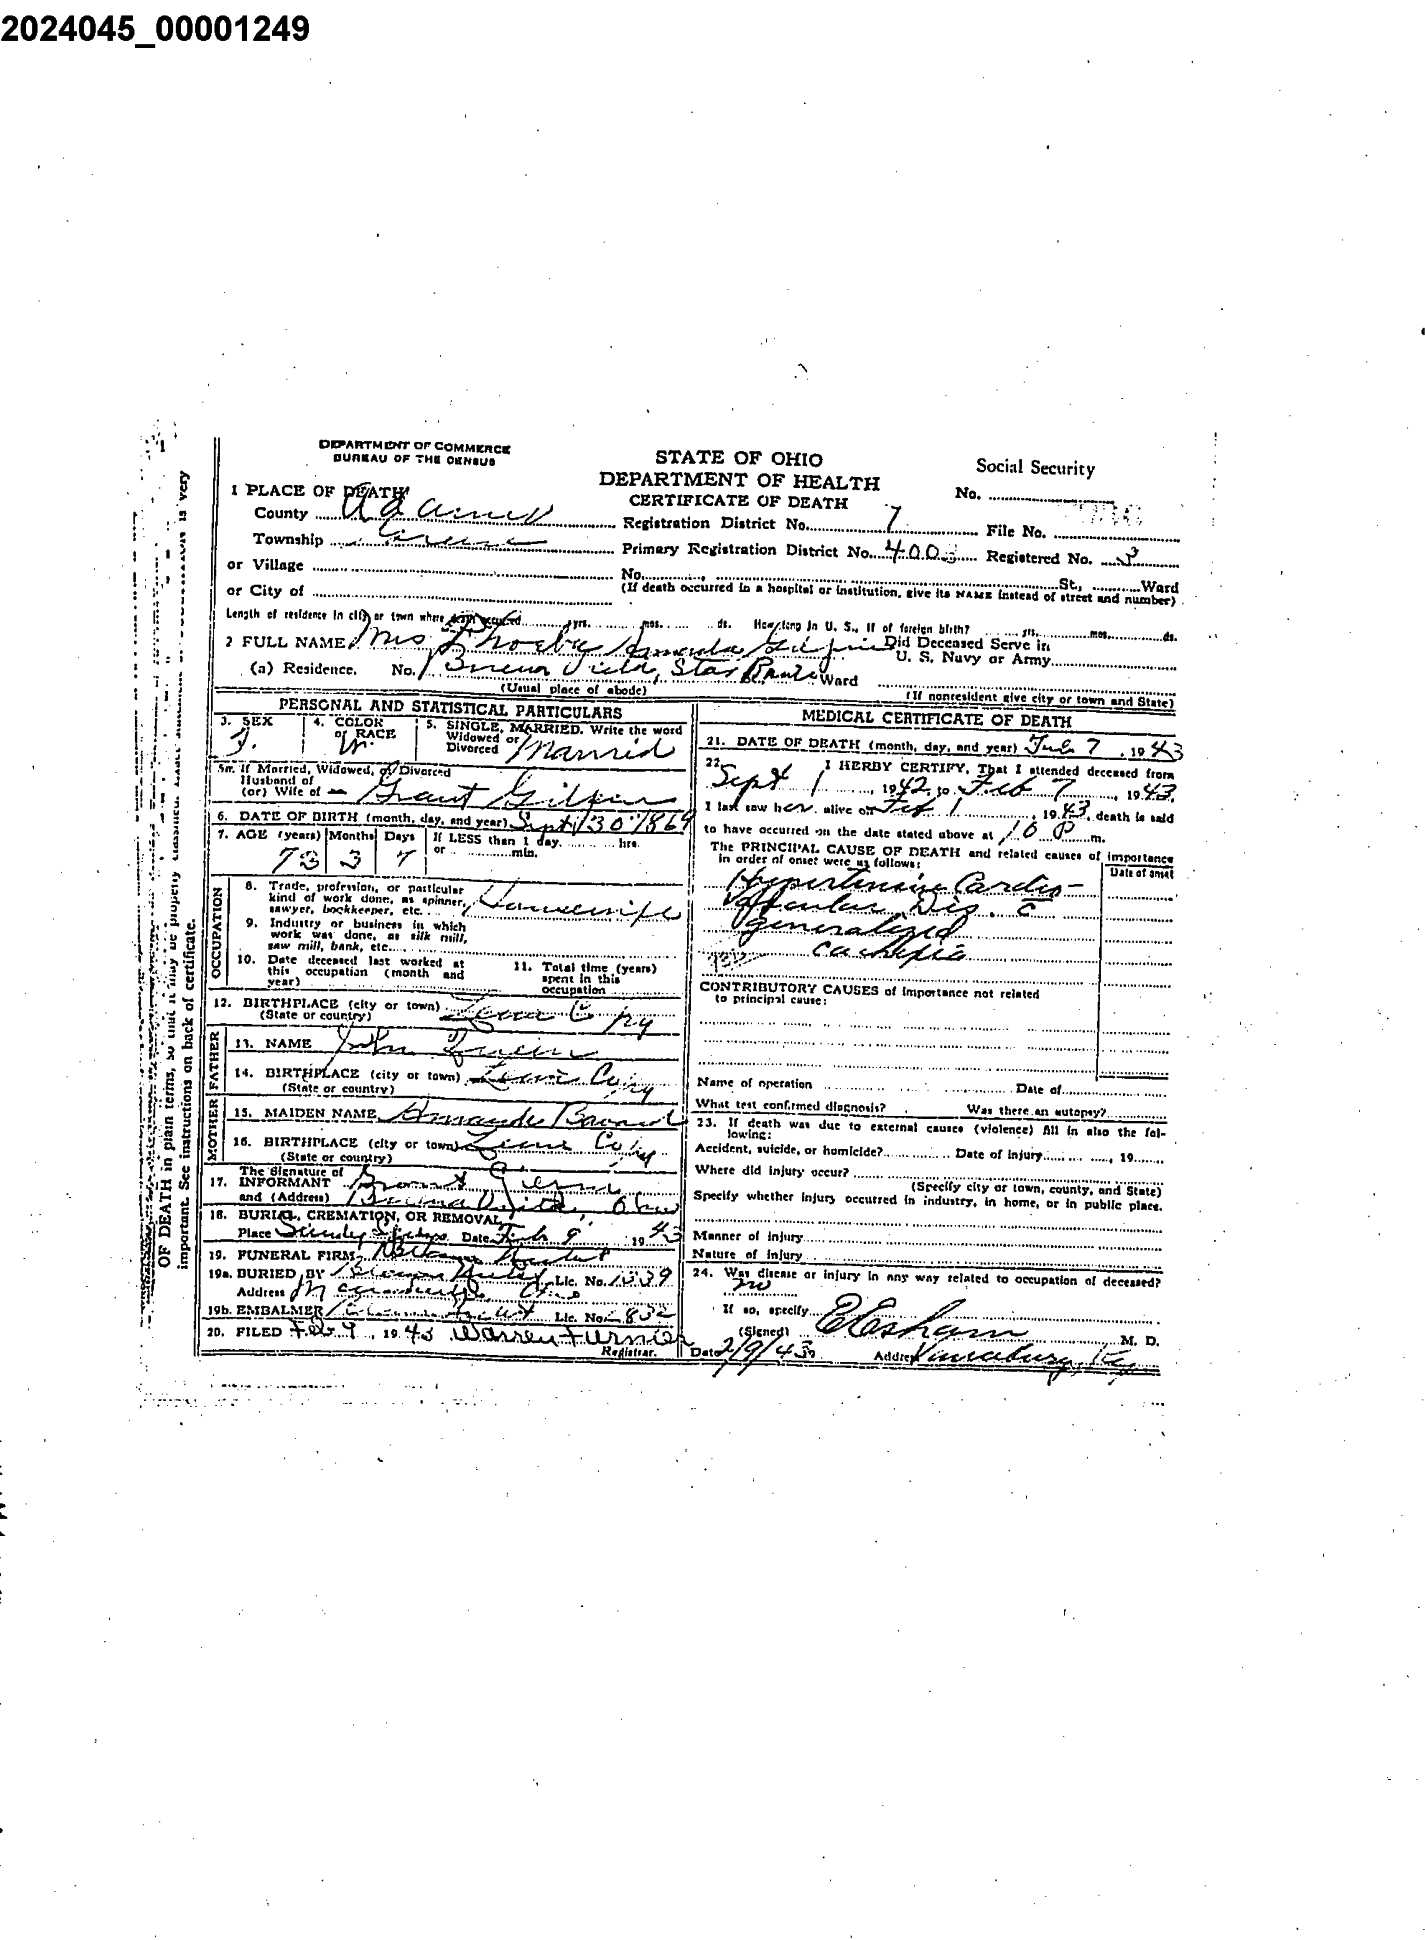 2024045_00001249
DEPARTMENT OF COMMERCE
BUREAU OF THE CENSUS
STATE OF OHIO
DEPARTMENT OF HEALTH
CERTIFICATE OF DEATH
Social Security
No.
1 PLACE OF DEATH
County Adams
Registration District No. 7
File No.
Township Greene
Primary Registration District No. 4003
Registered No. 3
or Village
No. St., Ward
or City of
(If death occurred in a hospital or institution, give its NAME instead of street and number)
Length of residence in city or town where death occurred yrs. mos. ds. How long in U. S., if of foreign birth? yrs. mos. ds.
2 FULL NAME Mrs Phoebe Amanda Gilpin
Did Deceased Serve in
U. S. Navy or Army
(a) Residence. No. Buena Vista, Star Route Ward
(Usual place of abode)
(If nonresident give city or town and State)
PERSONAL AND STATISTICAL PARTICULARS
3. SEX F.
4. COLOR or RACE W.
5. SINGLE, MARRIED. Write the word
Widowed or
Divorced Married
5a. If Married, Widowed, or Divorced
Husband of
(or) Wife of Grant Gilpin
6. DATE OF BIRTH (month, day, and year) Sept 30 1869
7. AGE (years) Months Days If LESS than 1 day, hrs.
or min.
73 3 7
OCCUPATION
8. Trade, profession, or particular
kind of work done, as spinner,
sawyer, bookkeeper, etc. Housewife
9. Industry or business in which
work was done, as silk mill,
saw mill, bank, etc.
10. Date deceased last worked at
this occupation (month and
year)
11. Total time (years)
spent in this
occupation
12. BIRTHPLACE (city or town) Co Ky
(State or country)
FATHER
13. NAME John
14. BIRTHPLACE (city or town) Lewis Co Ky
(State or country)
MOTHER
15. MAIDEN NAME Amanda
16. BIRTHPLACE (city or town) Lewis Co Ky
(State or country)
The Signature of
17. INFORMANT Grant
and (Address) Buena Vista, Ohio
18. BURIAL, CREMATION, OR REMOVAL
Place Date Feb 9 1943
19. FUNERAL FIRM
19a. BURIED BY Lic. No. 1339
Address
19b. EMBALMER Lic. No.
20. FILED Feb 9, 1943 Warren
Registrar.
MEDICAL CERTIFICATE OF DEATH
21. DATE OF DEATH (month, day, and year) Feb 7, 1943
22. I HERBY CERTIFY, That I attended deceased from
Sept 1, 1942, to Feb 7, 1943.
I last saw her alive on Feb 1, 1943, death is said
to have occurred on the date stated above at 10 P m.
The PRINCIPAL CAUSE OF DEATH and related causes of importance
in order of onset were as follows:
Date of onset
Hypertensive Cardio-
Vascular Dis. c̄
generalized
cachexia
CONTRIBUTORY CAUSES of importance not related
to principal cause:
Name of operation Date of
What test confirmed diagnosis? Was there an autopsy?
23. If death was due to external causes (violence) fill in also the fol-
lowing:
Accident, suicide, or homicide? Date of injury , 19
Where did injury occur?
(Specify city or town, county, and State)
Specify whether injury occurred in industry, in home, or in public place.
Manner of injury
Nature of injury
24. Was disease or injury in any way related to occupation of deceased?
no
If so, specify
(Signed) Esham M. D.
Date 2/9/43 Address Vanceburg, Ky
OF DEATH in plain terms, so that it may be properly
important. See instructions on back of certificate.